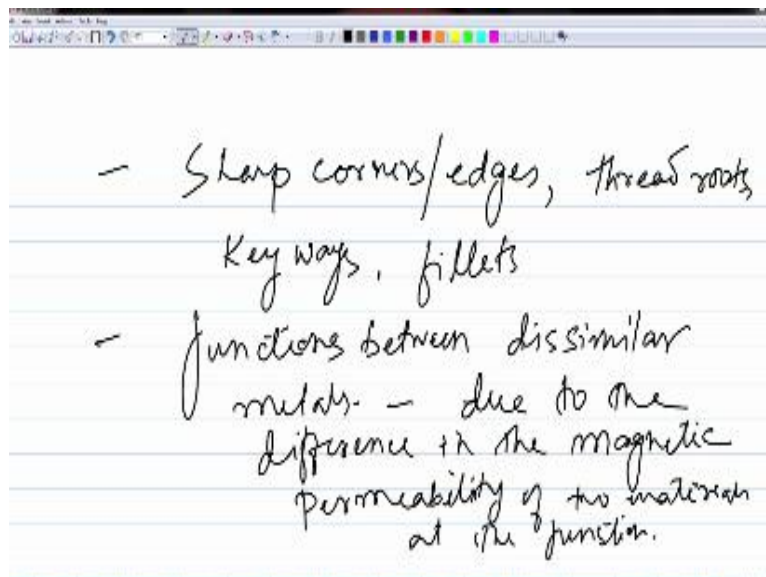 - Sharp corners/edges, thread roots
Key ways, fillets
- Junctions between dissimilar
metals. - due to the
difference in the magnetic
permeability of two materials
at the junction.